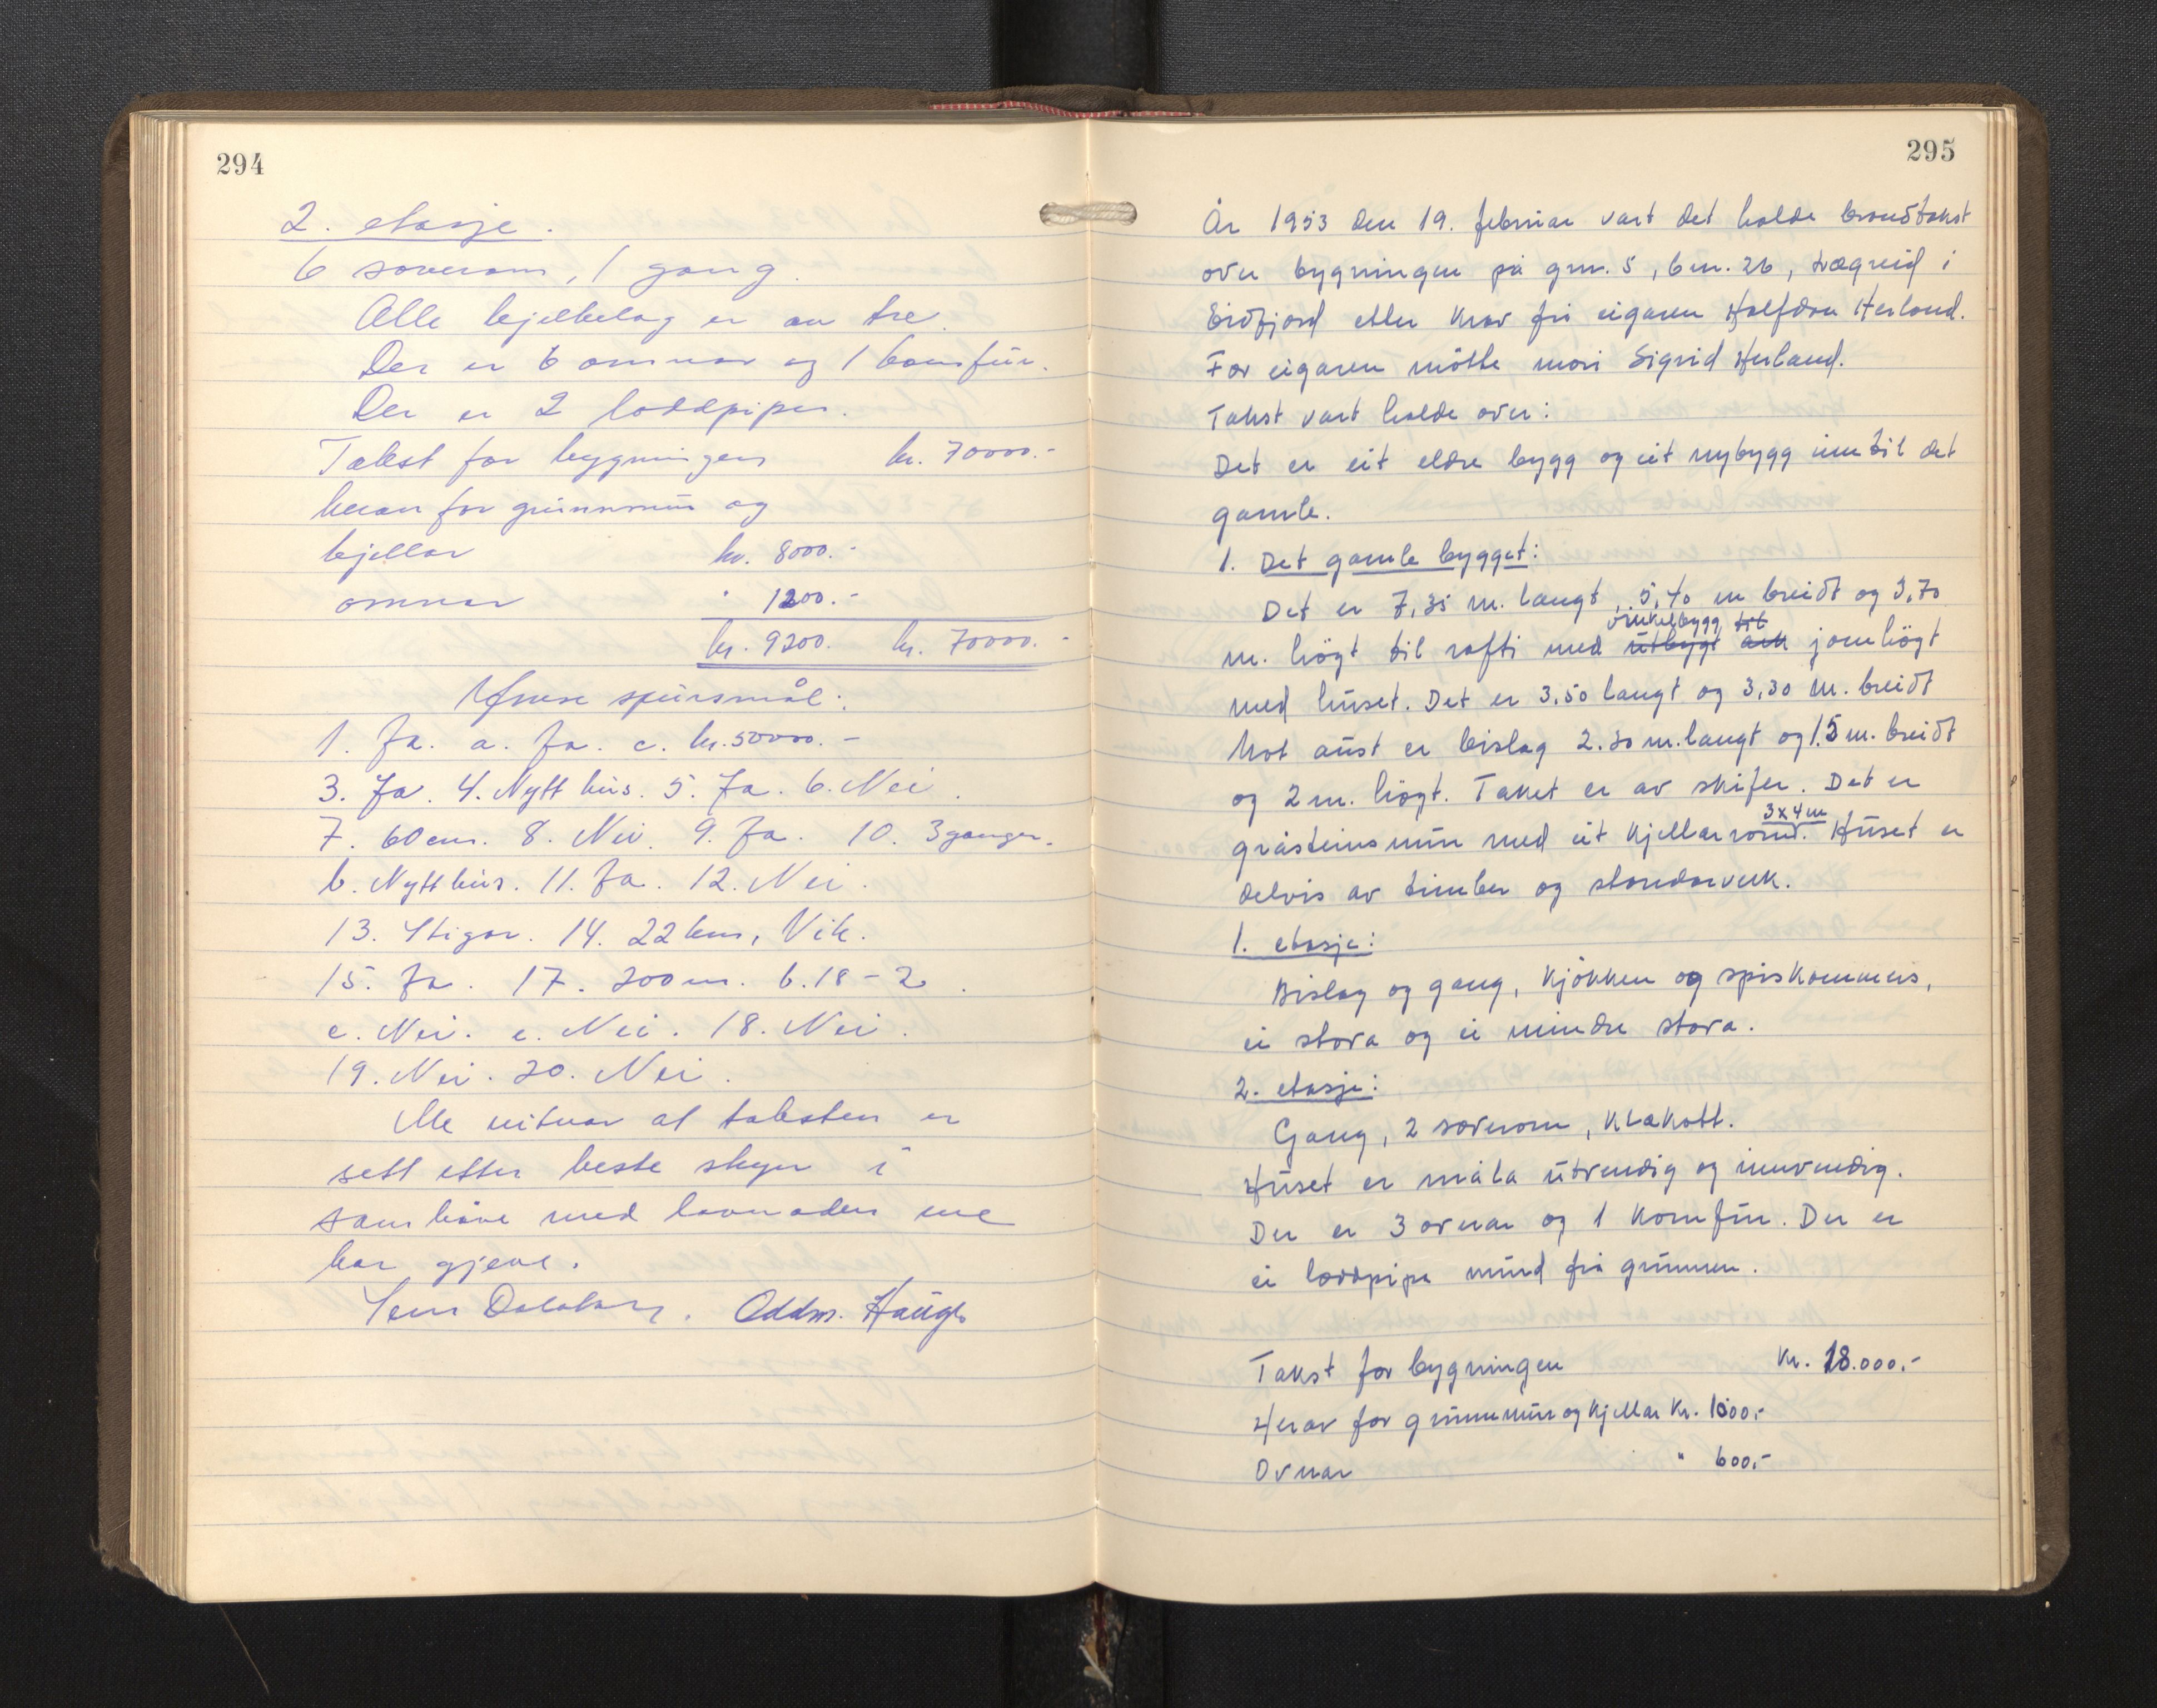 294
2. etasje.
6 soverom, 1 gong.
Alle bjelkelag er av tre.
Der er 6 omnar og 1 komfür.
Der er 2 loddpiper.
Takst for bygningen kr. 70000.-
herav for grünnmür og
kjellar kr. 8000.-
omnar " 1200.-
kr. 9200. kr. 70000.-
Ymse spürsmål:
1. Ja. a. Ja. c. kr. 50000.-
3. Ja. 4. Nytt hüs. 5. Ja. 6. Nei.
7. 60 cm. 8. Nei. 9. Ja. 10. 3 ganger.
b. Nytt hüs. 11. Ja. 12. Nei.
13. Stigar. 14. 22 km, Vik.
15. Ja. 17. 200 m. b. 18 - 2.
c. Nei. e. Nei. 18. Nei.
19. Nei. 20. Nei.
Me vitnar at taksten er
sett etter beste skyn i
samhøve med lovnaden me
har gjeve.
Oddm. Haügli
295
År 1953 den 19. februar vart det halde brandtakst
over bygningen på gnr. 5, bnr. 26, Lægreid i
Eidfjord etter krav frå eigaren Halfdan Herland.
For eigaren mötte mori Sigrid Herland.
Takst vart halde over:
Det er eit eldre bygg og eit nybygg inn til det
gamle.
1. Det gamle bygget:
Det er 7,35 m. langt, 5,40 m breidt og 3,70
vinkelbygg til
m. högt til rafti med ütbygt ark jomhögt
med hüset. Det er 3.50 langt og 3,30 m. breidt
Mot aüst er bislag 2.30 m. langt og 1.5 m. breidt
og 2 m. högt. Taket er av skifer. Det er
3x4 m
gråsteinsmür med eit kjellarromd. Hüset er
delvis av timber og standarverk.
1. etasje:
Bislag og gang, kjökken og spiskammers,
ei stova og ei mindre stova.
2. etasje:
Gang, 2 soverom, klekott.
Hüset er måla ütvendig og innvendig.
Der er 3 ovnar og 1 komfür. Der er
ei loddpipe mürd frå grünnen.
Takst for bygningen kr. 18.000.-
Herav for grünnmür og kjellar kr. 1000.-
Ovnar " 600.-